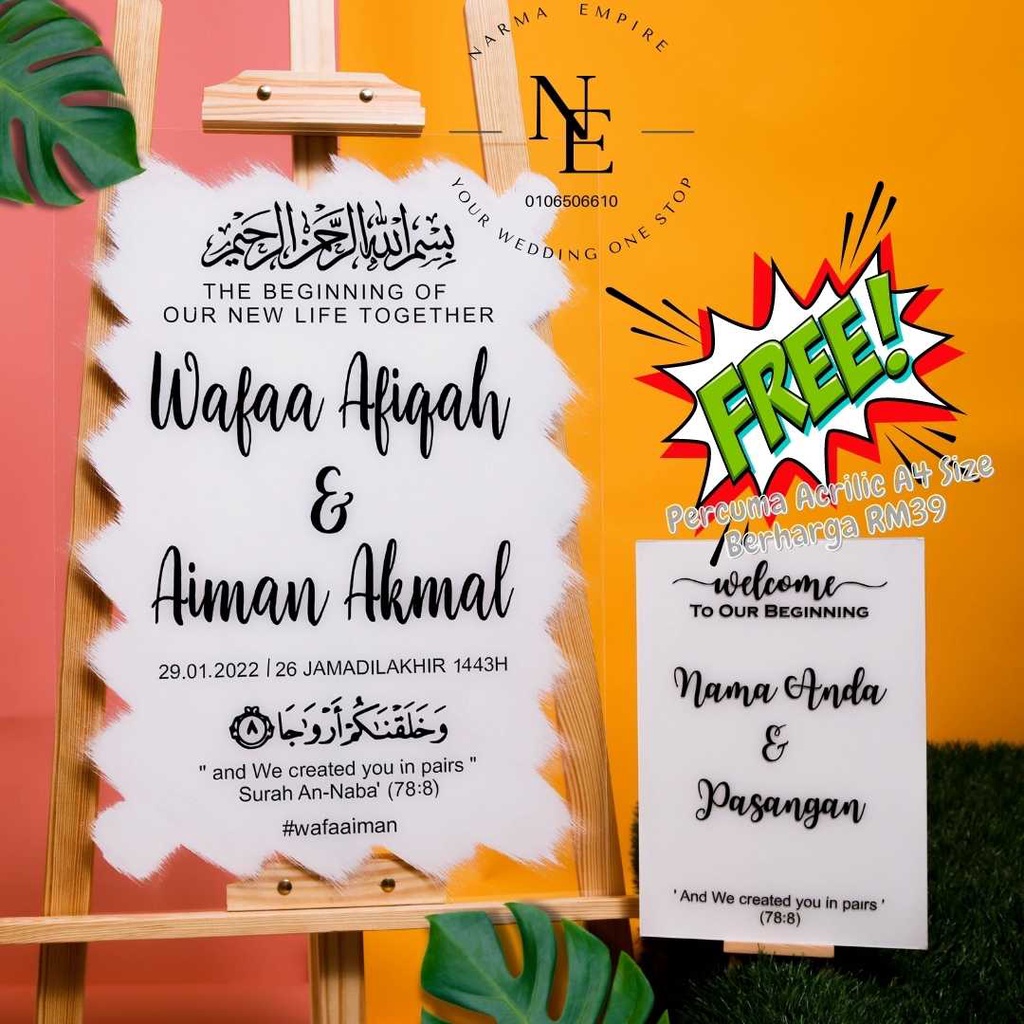 NARMA EMPIRE
NE
0106506610
YOUR WEDDING ONE STOP
بسم الله الرحمن الرحيم
THE BEGINNING OF
OUR NEW LIFE TOGETHER
Wafaa Afiqah
&
Aiman Akmal
29.01.2022 | 26 JAMADILAKHIR 1443H
وَخَلَقْنَٰكُمْ أَزْوَٰجًا ٨
" and We created you in pairs "
Surah An-Naba' (78:8)
#wafaaiman
FREE!
Percuma Acrilic A4 Size
Berharga RM39
welcome
TO OUR BEGINNING
Nama Anda
&
Pasangan
' And We created you in pairs '
(78:8)